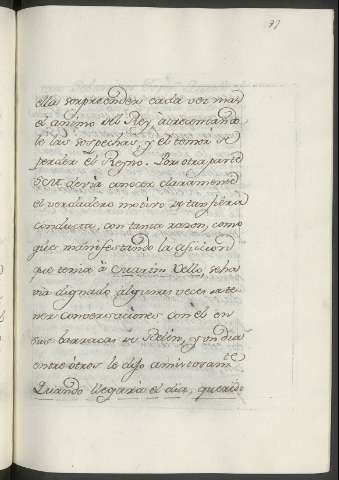 37
ella sorprender cada vez mas
el animo del Rey, acresentando
le las sospechas, y el temor de
perder el Reyno. Por otra parte
devia conocer claramente
el verdadero motivo de tan fiera
conducta, con tanta razon, como
que manifestando la aficion
que tenia à Velho, se ha
via dignado algunas veces de te
ner conversaciones con èl en
sus barracas de Belèn, y un dia
entre otros le dijo amorosam.te
Quando llegarà el dia, querido